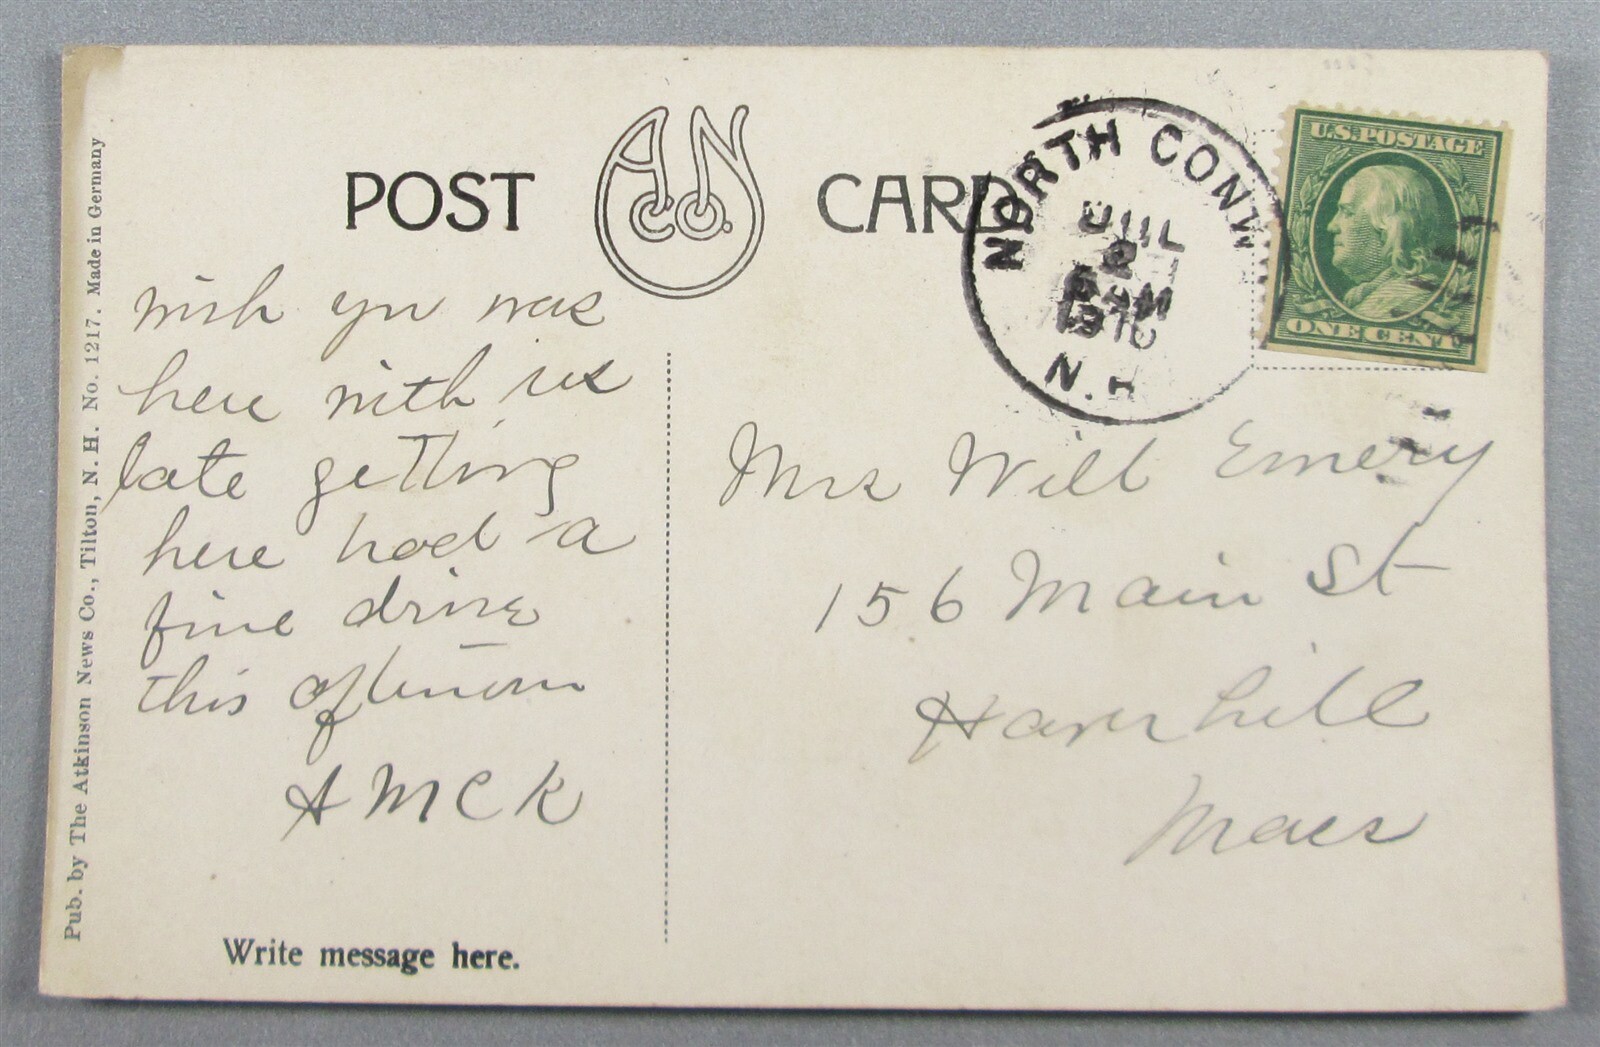 POST CARD
A.N. Co.
NORTH CONW
JUL
2
1910
N.H
U.S. POSTAGE
ONE CENT
Pub. by The Atkinson News Co., Tilton, N. H. No. 1217. Made in Germany
wish you was
here with us
late getting
here had a
fine drive
this afternoon
A M C K
Write message here.
Mrs Will Emery
156 Main St
Haverhill
Mass